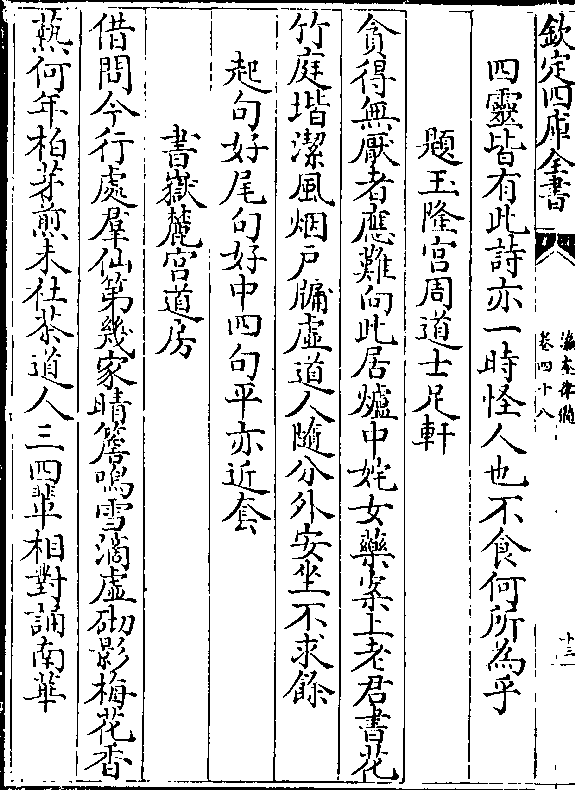 欽定四庫全書
瀛奎律髓
卷四十八
十三
四靈皆有此詩亦一時怪人也不食何所為乎
題玉隆宮周道士足軒
貪得無厭者應難向此居爐中姹女藥案上老君書花
竹庭堦潔風烟戶牖虛道人隨分外安坐不求餘
起句好尾句好中四句平亦近套
書嶽麓宮道房
借問今行處羣仙第幾家晴簷鳴雪滴虛砌影梅花香
爇何年柏芽煎未社茶道人三四輩相對誦南華